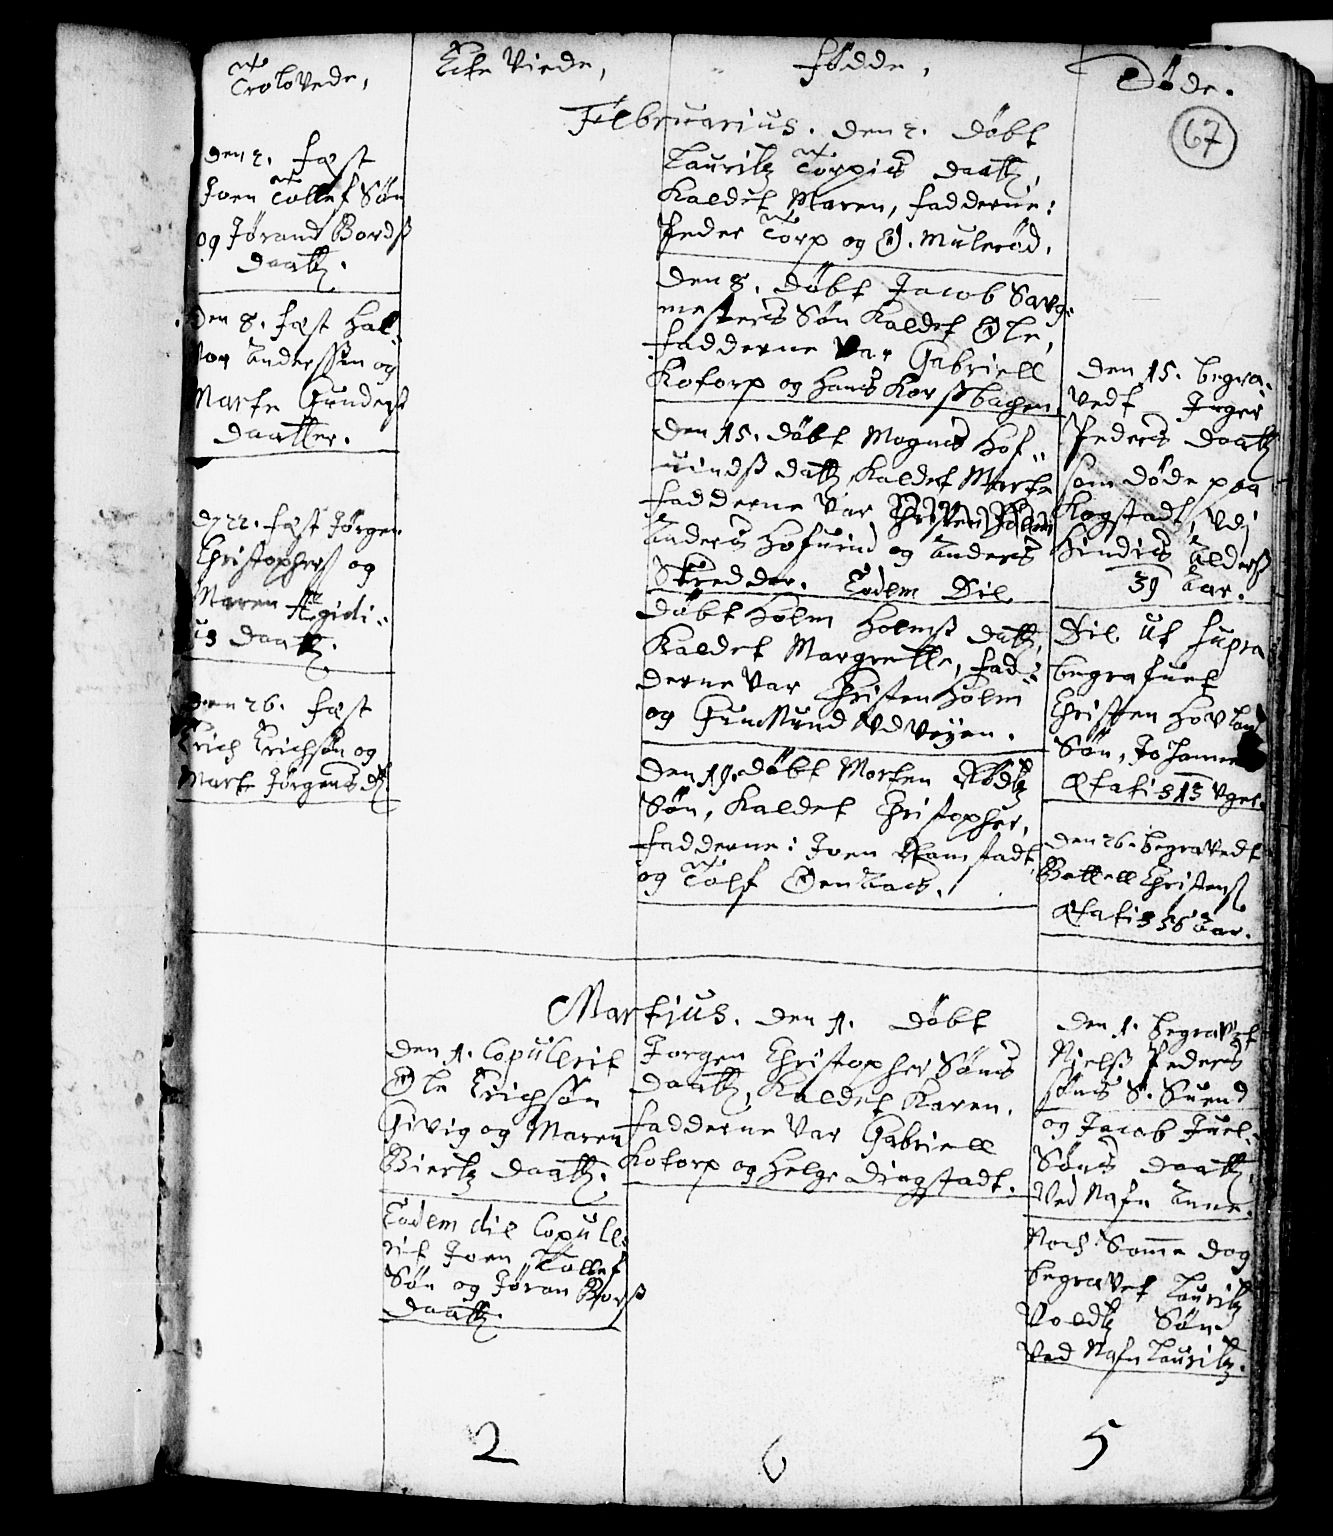 Trolovede,
Echte Viede,
Fødde,
Døde.
67
Februarius. Den 2. døbt
Lauritz Torpis daatt,
Kaldet Maren, fadderne:
Peder Torp og O. Mulerød.
Den 8. døbt Jacob Saug-
mesters Søn Kaldet Ole,
fadderne var Gabriell
Kotorp og Hans Korssbachen
Den 15. døbt Mogns Hof-
uindss datt, Kaldet Marte
fadderne var
Anders Hofuind og Anders
Skredder. Eodem Die
døbt Holm Holmss datt,
Kaldet Margrette, fad-
derne var Christen Holm
og Gunssund Vdvejen.
Den 19. døbt Morten Rødtz
Søn, Kaldet Christopher,
fadderne: Joen Ramstadt
og Tolf
Den 2. fæst
Joen Tollef Søn
og Jørand Bordss
daatt.
Den 8. fæst Hal-
vor Anderssøn og
Marte Gunderss
daatter.
D. 22. fæst Jørgen
Christopherss og
Maren Ægidi-
us daatt.
Den 26. fæst
Erich Erichsøn og
Marte Jørgens d.
Den 15. begra-
vedt Inger
Peders daatt
som døde paa
Kogstadt, Vdj
hindis Alderss
39 Aar.
Die ut supra
begrafuet
Christen Hovland
Søn, Johannes
Ætatis 13 Vger.
Den 26. begravedt
Bottell Christenss
Ætatis 56 Aar.
Martius. Den 1. døbt
Jorgen Christopher Søns
daatt, Kaldet Karen.
fadderne var Gabriell
Kotorp og Helge Dingstadt.
Den 1. Copulerit
Ole Erichsøn
Givig og Maren
Biertz daatt.
Eodem die Copule-
rit Joen Tollef
Søn og Jøran Borss
daatt.
Den 1. begravet
Nielss Peders
søns S. Suend
og Jacob Juel-
Søns daatt,
Ved Nafn Anne.
Noch Samme dag
begravet Lauritz
Voldtz Søn
Ved Nafn Lauritz.
2
6
5